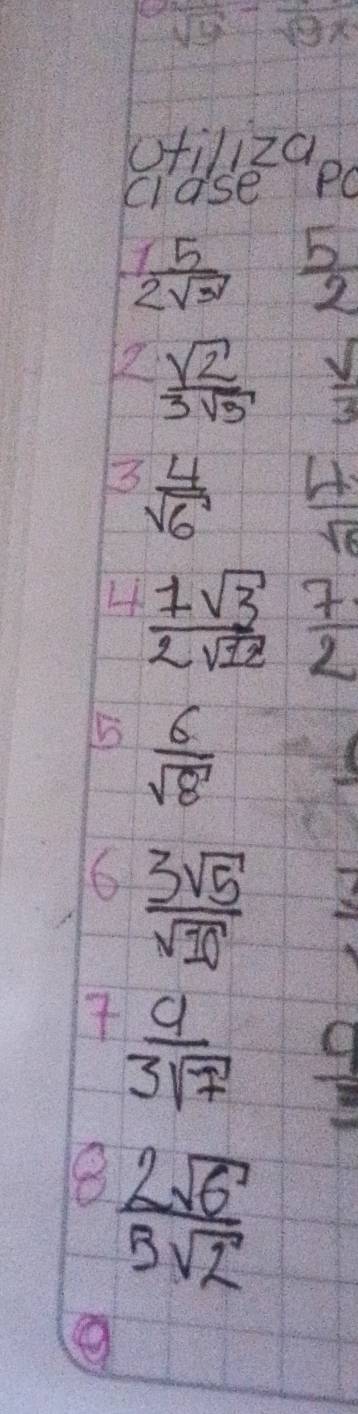 √9 √9x
Utiliza
clase
1 5/2√3 5/2
2 √2/3√5 √/3
3 4/√6 4/√6
4 7√3/2√12 7/2
5 6/√8
6 3√5/√10
7 9/3√7
8 2√6/5√2
9